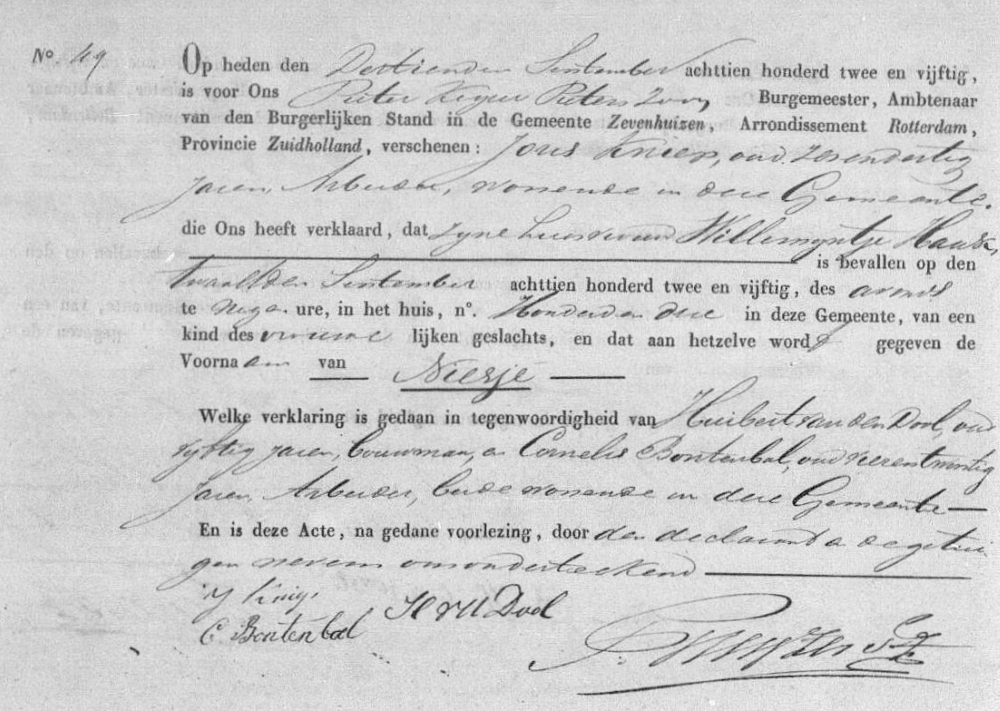 No 49
Op heden den Dertienden September achttien honderd twee en vijftig,
is voor Ons Pieter Pieters Zoon Burgemeester, Ambtenaar
van den Burgerlijken Stand in de Gemeente Zevenhuizen, Arrondissement Rotterdam,
Provincie Zuidholland, verschenen: Joris oud zesendertig
Jaren, Arbeider, wonende in deze Gemeente.
die Ons heeft verklaard, dat zyne huisvrouw Willemyntje
is bevallen op den
twaalfden September achttien honderd twee en vijftig, des avonds
te negen ure, in het huis, n°. Honderd en drie in deze Gemeente, van een
kind des vrouwe lijken geslachts, en dat aan hetzelve word gegeven de
Voornaam van Niesje
Welke verklaring is gedaan in tegenwoordigheid van Huibert van den Dool, oud
vyftig jaren, bouwman, en Cornelis Bontenbal, oud vierentwintig
Jaren, Arbeider, beide wonende in deze Gemeente
En is deze Acte, na gedane voorlezing, door den declarant en de getui
gen nevens ons ondertekend
H v d Dool
C Bontenbal